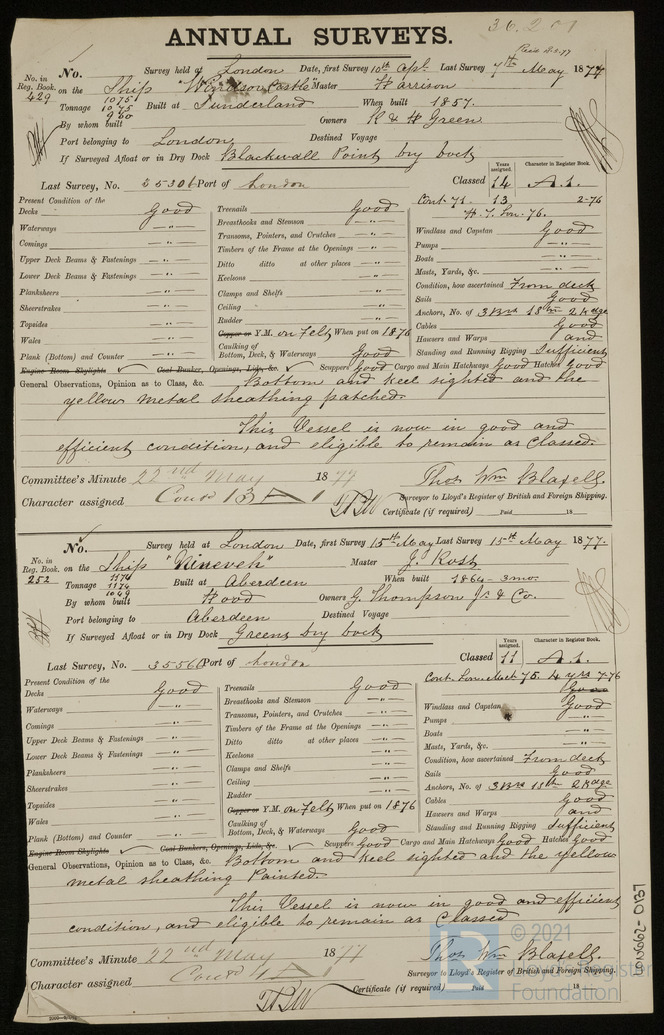 36.201
ANNUAL SURVEYS.
No. Survey held at London Date, first Survey 10th Apl. Last Survey 7th May 1877
No. in Reg. Book. on the Ship "Windsor Castle" Master Harrison
429 Tonnage 1075 1075 960 Built at Sunderland When built 1857.
By whom built Owners R & H Green
Port belonging to London Destined Voyage
If Surveyed Afloat or in Dry Dock Blackwall Point Dry Dock
Last Survey, No. 35306 Port of London Classed Years assigned. 14 Character in Register Book. A.1.
Cont. 71. 13 2-76
Present Condition of the
Decks Good Treenails Good
Waterways " Breasthooks and Stemson " Windlass and Capstan Good
Comings " Transoms, Pointers, and Crutches " Pumps "
Upper Deck Beams & Fastenings " Timbers of the Frame at the Openings " Boats "
Lower Deck Beams & Fastenings " Ditto ditto at other places " Masts, Yards, &c. "
Planksheers " Keelsons " Condition, how ascertained From deck
Sheerstrakes " Clamps and Shelfs " Sails Good
Topsides " Ceiling " Anchors, No. of 3 Brs 1 Stm 2 Kedge
Wales " Rudder " Cables Good
Plank (Bottom) and Counter " Copper or Y.M. on Felt When put on 1876 Hawsers and Warps and
Caulking of Bottom, Deck, & Waterways Good Standing and Running Rigging Sufficient
Engine Room Skylights Coal Bunker, Openings, Lids, &c. Scuppers Good Cargo and Main Hatchways Good Hatches Good
General Observations, Opinion as to Class, &c. Bottom and keel sighted and the
yellow metal sheathing patched.
This Vessel is now in good and
efficient condition, and eligible to remain as Classed.
Committee's Minute 22nd May 1877 Thos. Wm Blaxell.
Character assigned Cont 13 A 1 Surveyor to Lloyd's Register of British and Foreign Shipping.
Certificate (if required) Paid 18
No. Survey held at London Date, first Survey 15th May Last Survey 15th May 1877.
No. in Reg. Book. on the Ship "Nineveh" Master J. Kost
252 Tonnage 1174 1174 1049 Built at Aberdeen When built 1864 - 3mo.
By whom built Hood Owners G. Thompson Jr. & Co.
Port belonging to Aberdeen Destined Voyage
If Surveyed Afloat or in Dry Dock Greens Dry Dock
Last Survey, No. 35560 Port of London Classed Years assigned. 11 Character in Register Book. A.1.
75 4 yrs 7-76
Present Condition of the
Decks Good Treenails Good
Waterways " Breasthooks and Stemson " Windlass and Capstan Good
Comings " Transoms, Pointers, and Crutches " Pumps "
Upper Deck Beams & Fastenings " Timbers of the Frame at the Openings " Boats "
Lower Deck Beams & Fastenings " Ditto ditto at other places " Masts, Yards, &c. "
Planksheers " Keelsons " Condition, how ascertained From deck
Sheerstrakes " Clamps and Shelfs " Sails Good
Topsides " Ceiling " Anchors, No. of 3 Brs 1 Stm 2 Kedge
Wales " Rudder " Cables Good
Plank (Bottom) and Counter " Copper or Y.M. on Felt When put on 1876 Hawsers and Warps and
Caulking of Bottom, Deck, & Waterways Good Standing and Running Rigging Sufficient
Engine Room Skylights Coal Bunkers, Openings, Lids, &c. Scuppers Good Cargo and Main Hatchways Good Hatches Good
General Observations, Opinion as to Class, &c. Bottom and keel sighted and the yellow
metal sheathing Painted.
This Vessel is now in good and efficient
condition, and eligible to remain as Classed
Committee's Minute 22nd May 1877 Thos. Wm Blaxell.
Character assigned Cont Surveyor to Lloyd's Register of British and Foreign Shipping.
Certificate (if required) Paid 18
© 2021
Lloyd's Register
Foundation